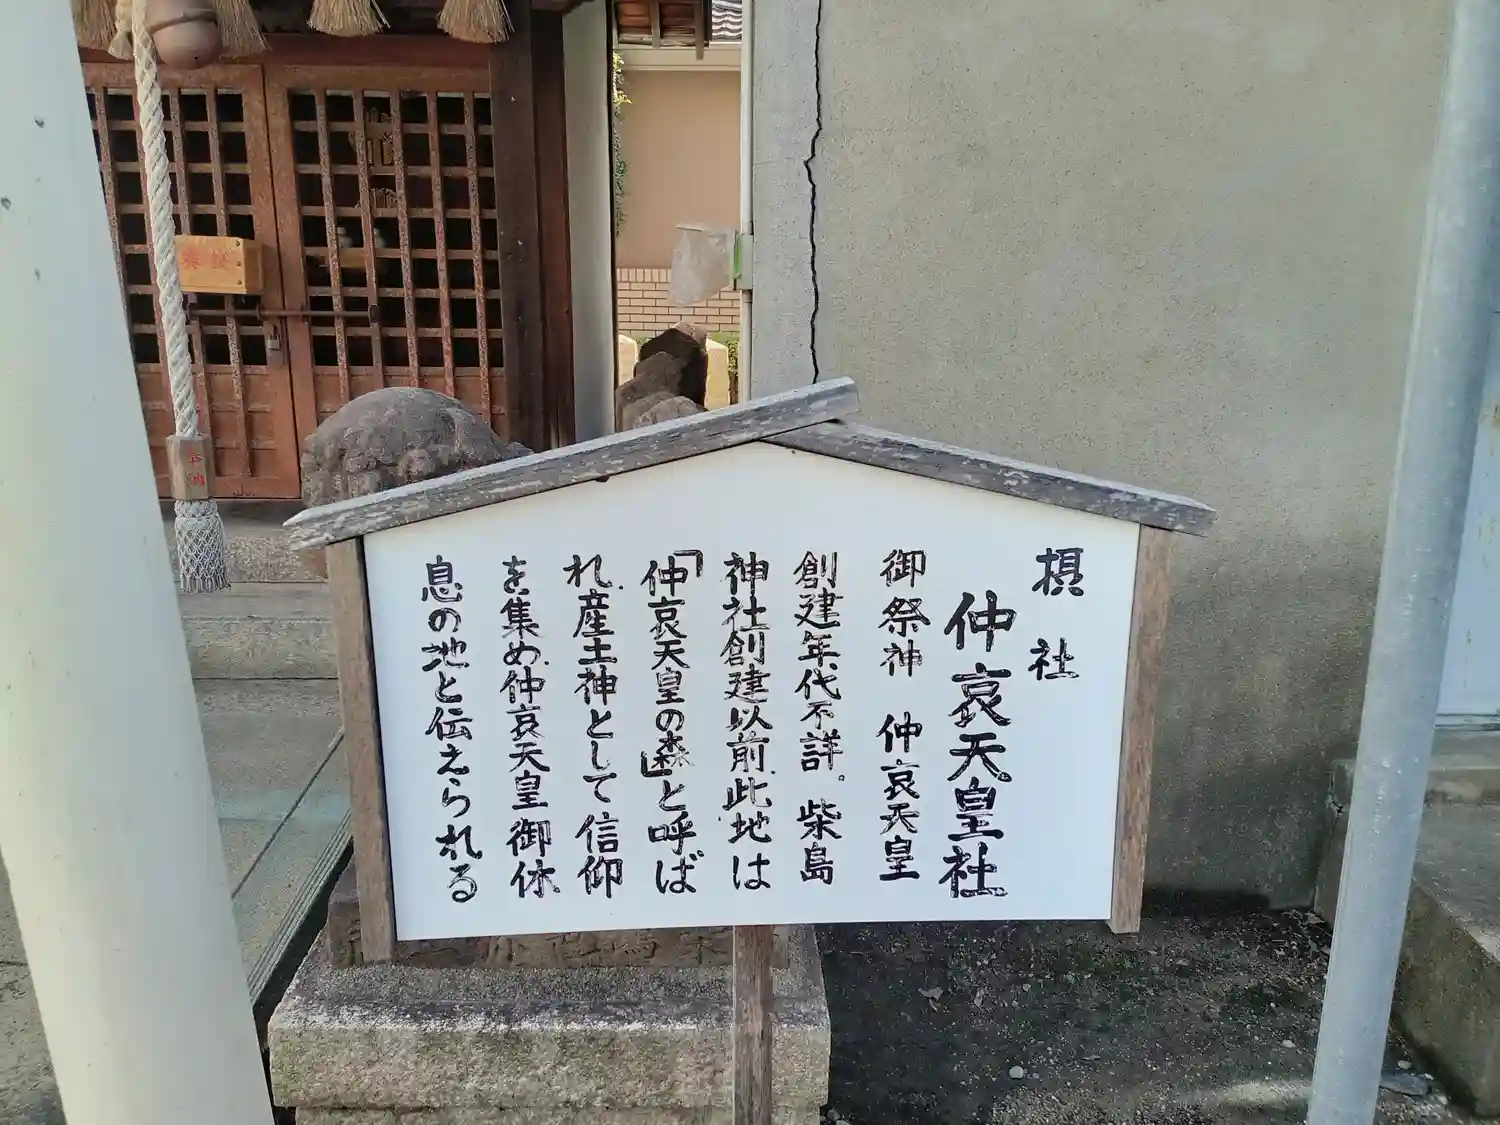 摂社
仲哀天皇社
御祭神 仲哀天皇
創建年代不詳。柴島
神社創建以前、此地は
「仲哀天皇の森」と呼ば
れ、産土神として信仰
を集め、仲哀天皇御休
息の地と伝えられる
奉納